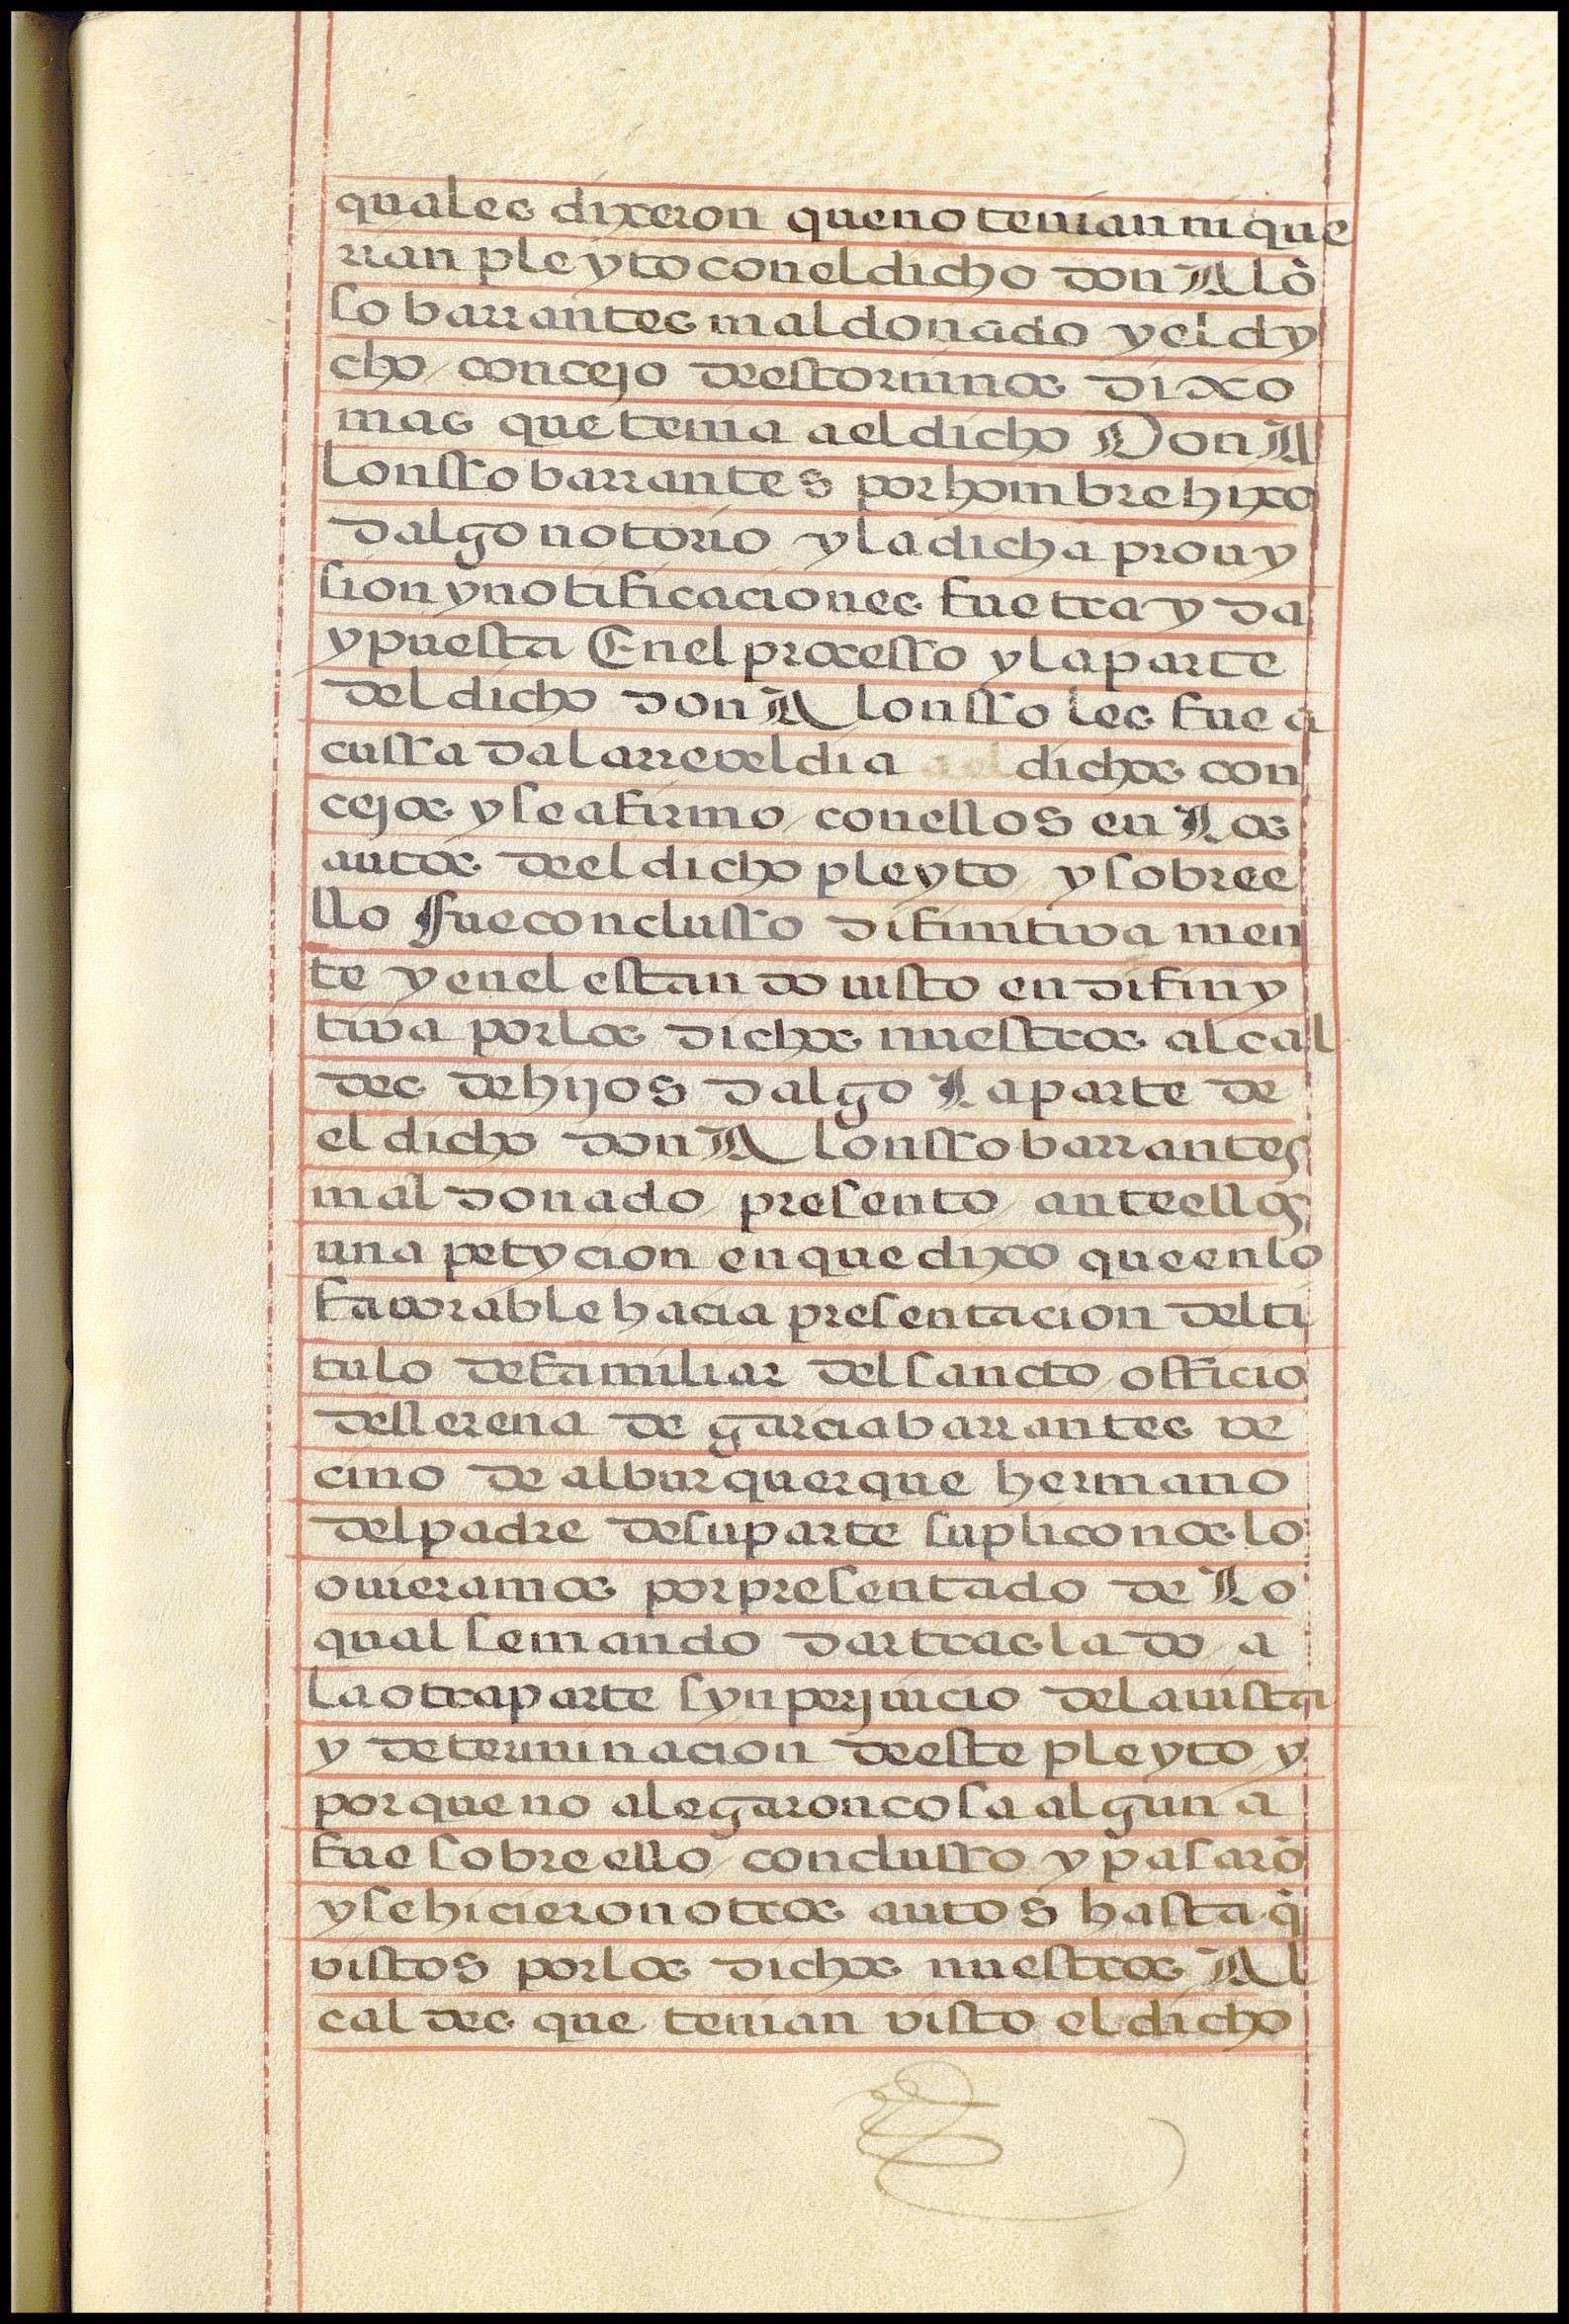 quales dixeron que no tenian ni que
rian pleyto con el dicho don Alõ
so barrantes maldonado y el dy
cho concejo destorninos dixo
mas que tenia a el dicho Don A
lonsso barrantes por hombre hixo
dalgo notorio y la dicha prouy
sion y notificaciones fue trayda
y puesta En el processo y la parte
del dicho don Alonsso les fue a
cussada la rreveldia a el dichos con
cejos y se afirmo con ellos en Los
autos de el dicho pleyto y sobre e
llo fue conclusso difinitiva men
te y en el estando uisto en difiny
tiva por los dichos nuestros alcal
des de hijos dalgo La parte de
el dicho don Alonsso barrantes
maldonado presento ante ellos
una petycion en que dixo que en lo
favorable hacia presentacion del ti
tulo de familiar del sancto officio
de llerena de garcia barrantes ve
cino de alburquerque hermano
del padre de su parte suplico nos lo
ouieramos por presentado de Lo
qual se mando dar traslado a
la otra parte syn perjuicio de la uista
y determinacion de este pleyto y
porque no alegaron cosa alguna
fue sobre ello conclusso y pasarõ
y se hicieron otros autos hasta q̃
vistos por los dichos nuestros Al
caldes que tenian visto el dicho